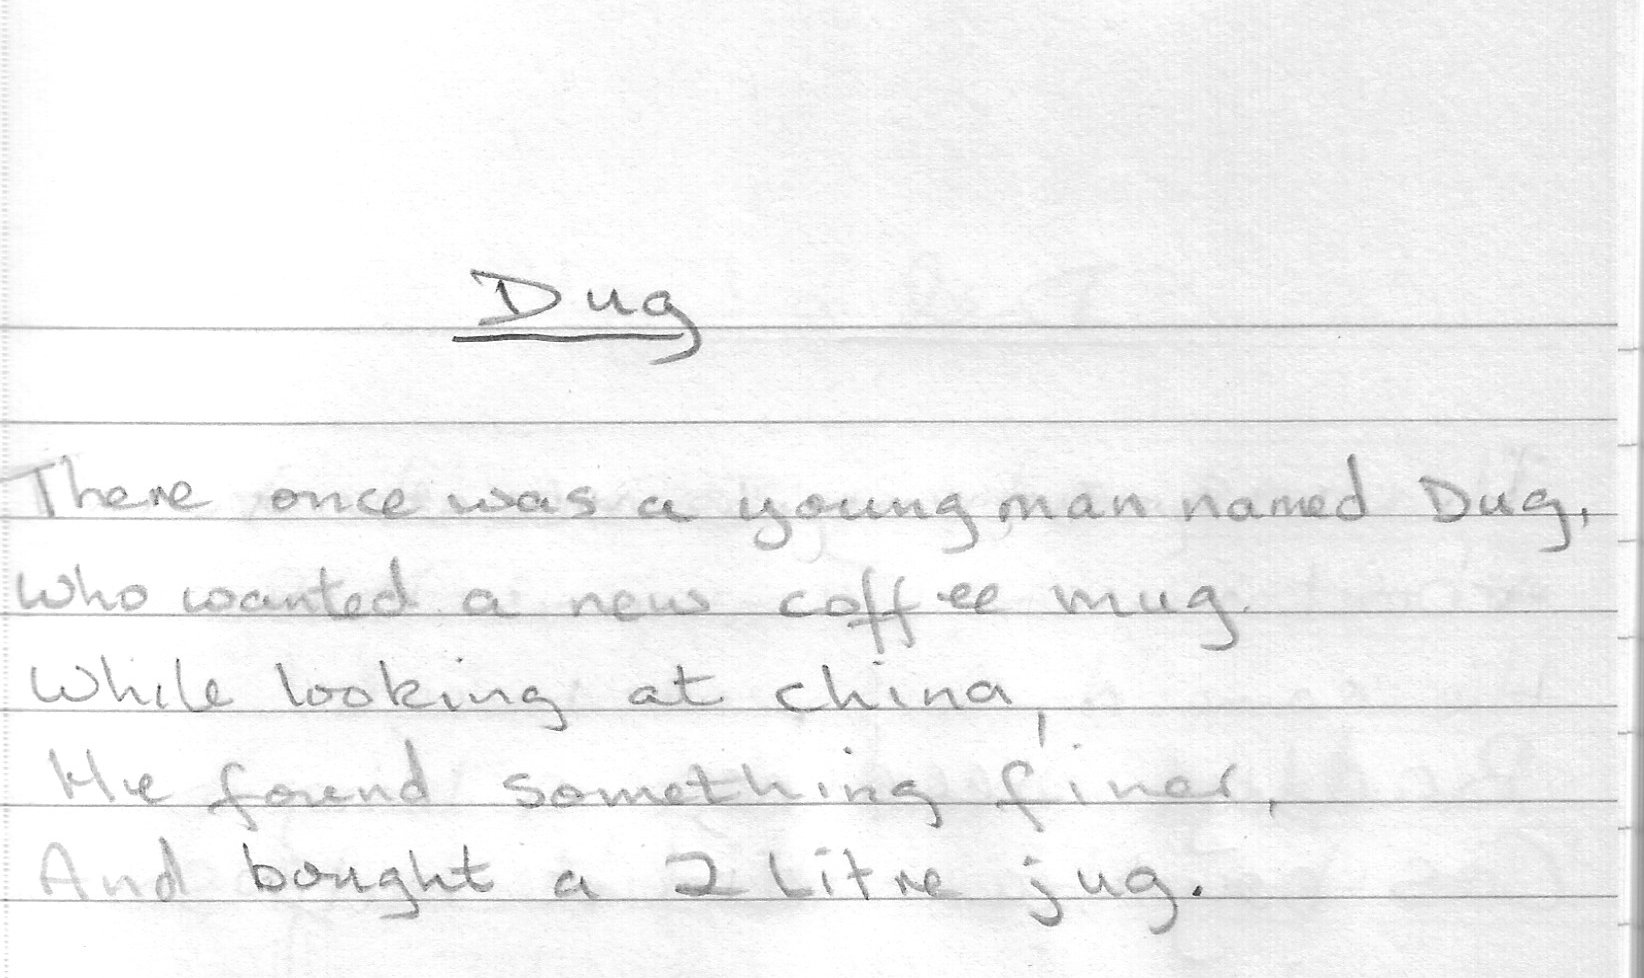 Dug
There once was a young man named Dug,
Who wanted a new coffee mug.
While looking at china,
He found something finer,
And bought a 2 Litre jug.